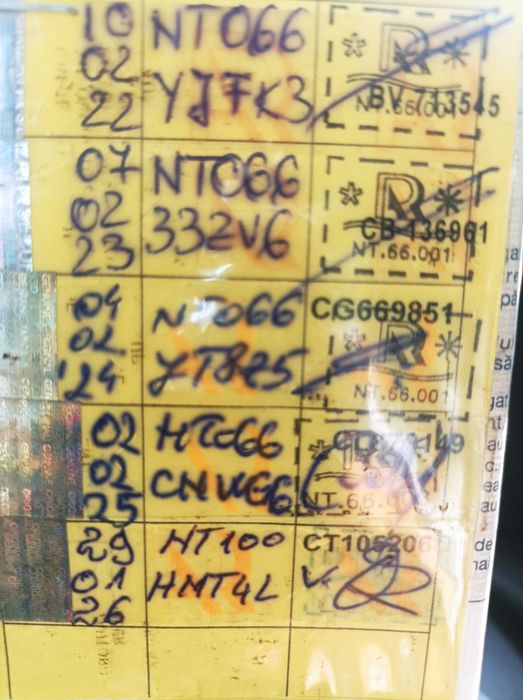 10
02
22
NT066
YJFK3
BV 713545
NT.66.001
07
02
23
NT066
332V6
CB 136961
NT.66.001
04
02
24
NT066
JT825
CG669851
NT.66.001
02
02
25
NT066
NT.66.00
29
01
26
NT100
HMT4L
CT105206